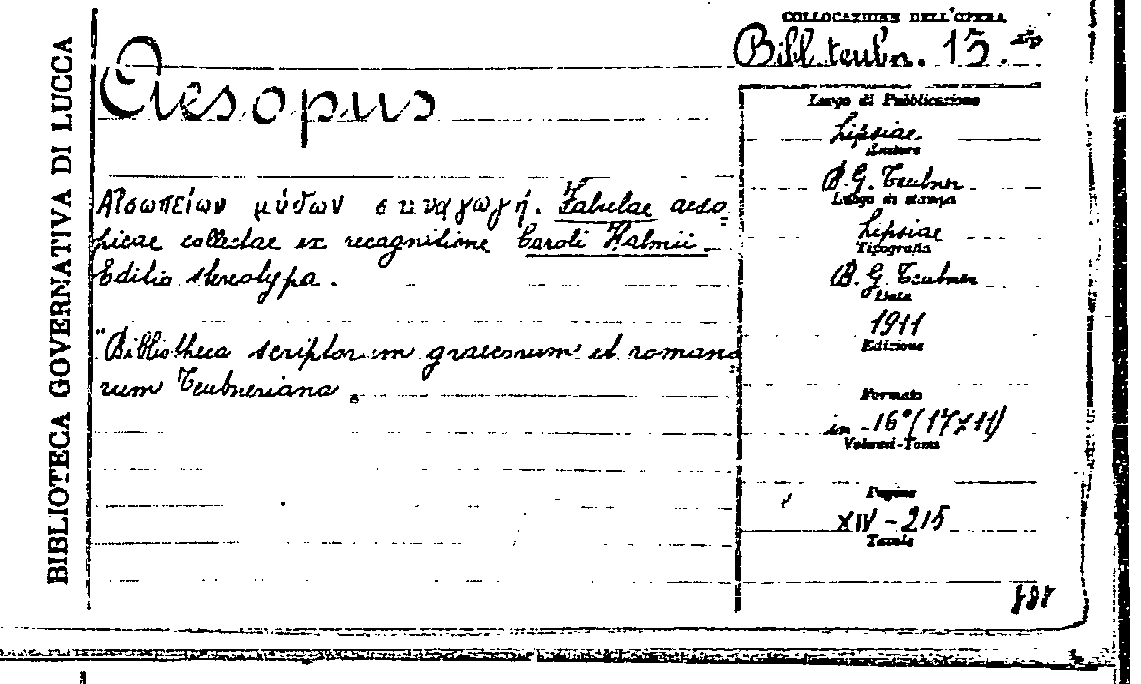 BIBLIOTECA GOVERNATIVA DI LUCCA
COLLOCAZIONE DELL'OPERA
Bibl. teubn. 15.
Aesopus
Αἰσωπείων μύθων συναγωγή. Fabulae aeso=
picae collectae ex recognitione Caroli Halmii.
Editio stereotypa.
"Bibliotheca scriptorum graecorum et romano=
rum Teubneriana.
Luogo di Pubblicazione
Lipsiae
Editore
B. G. Teubner
Luogo di stampa
Lipsiae
Tipografia
B. G. Teubner
Data
1911
Edizione
Formato
in-16° (17x11)
Volumi-Tomi
Pagine
XIV-215
Tavole